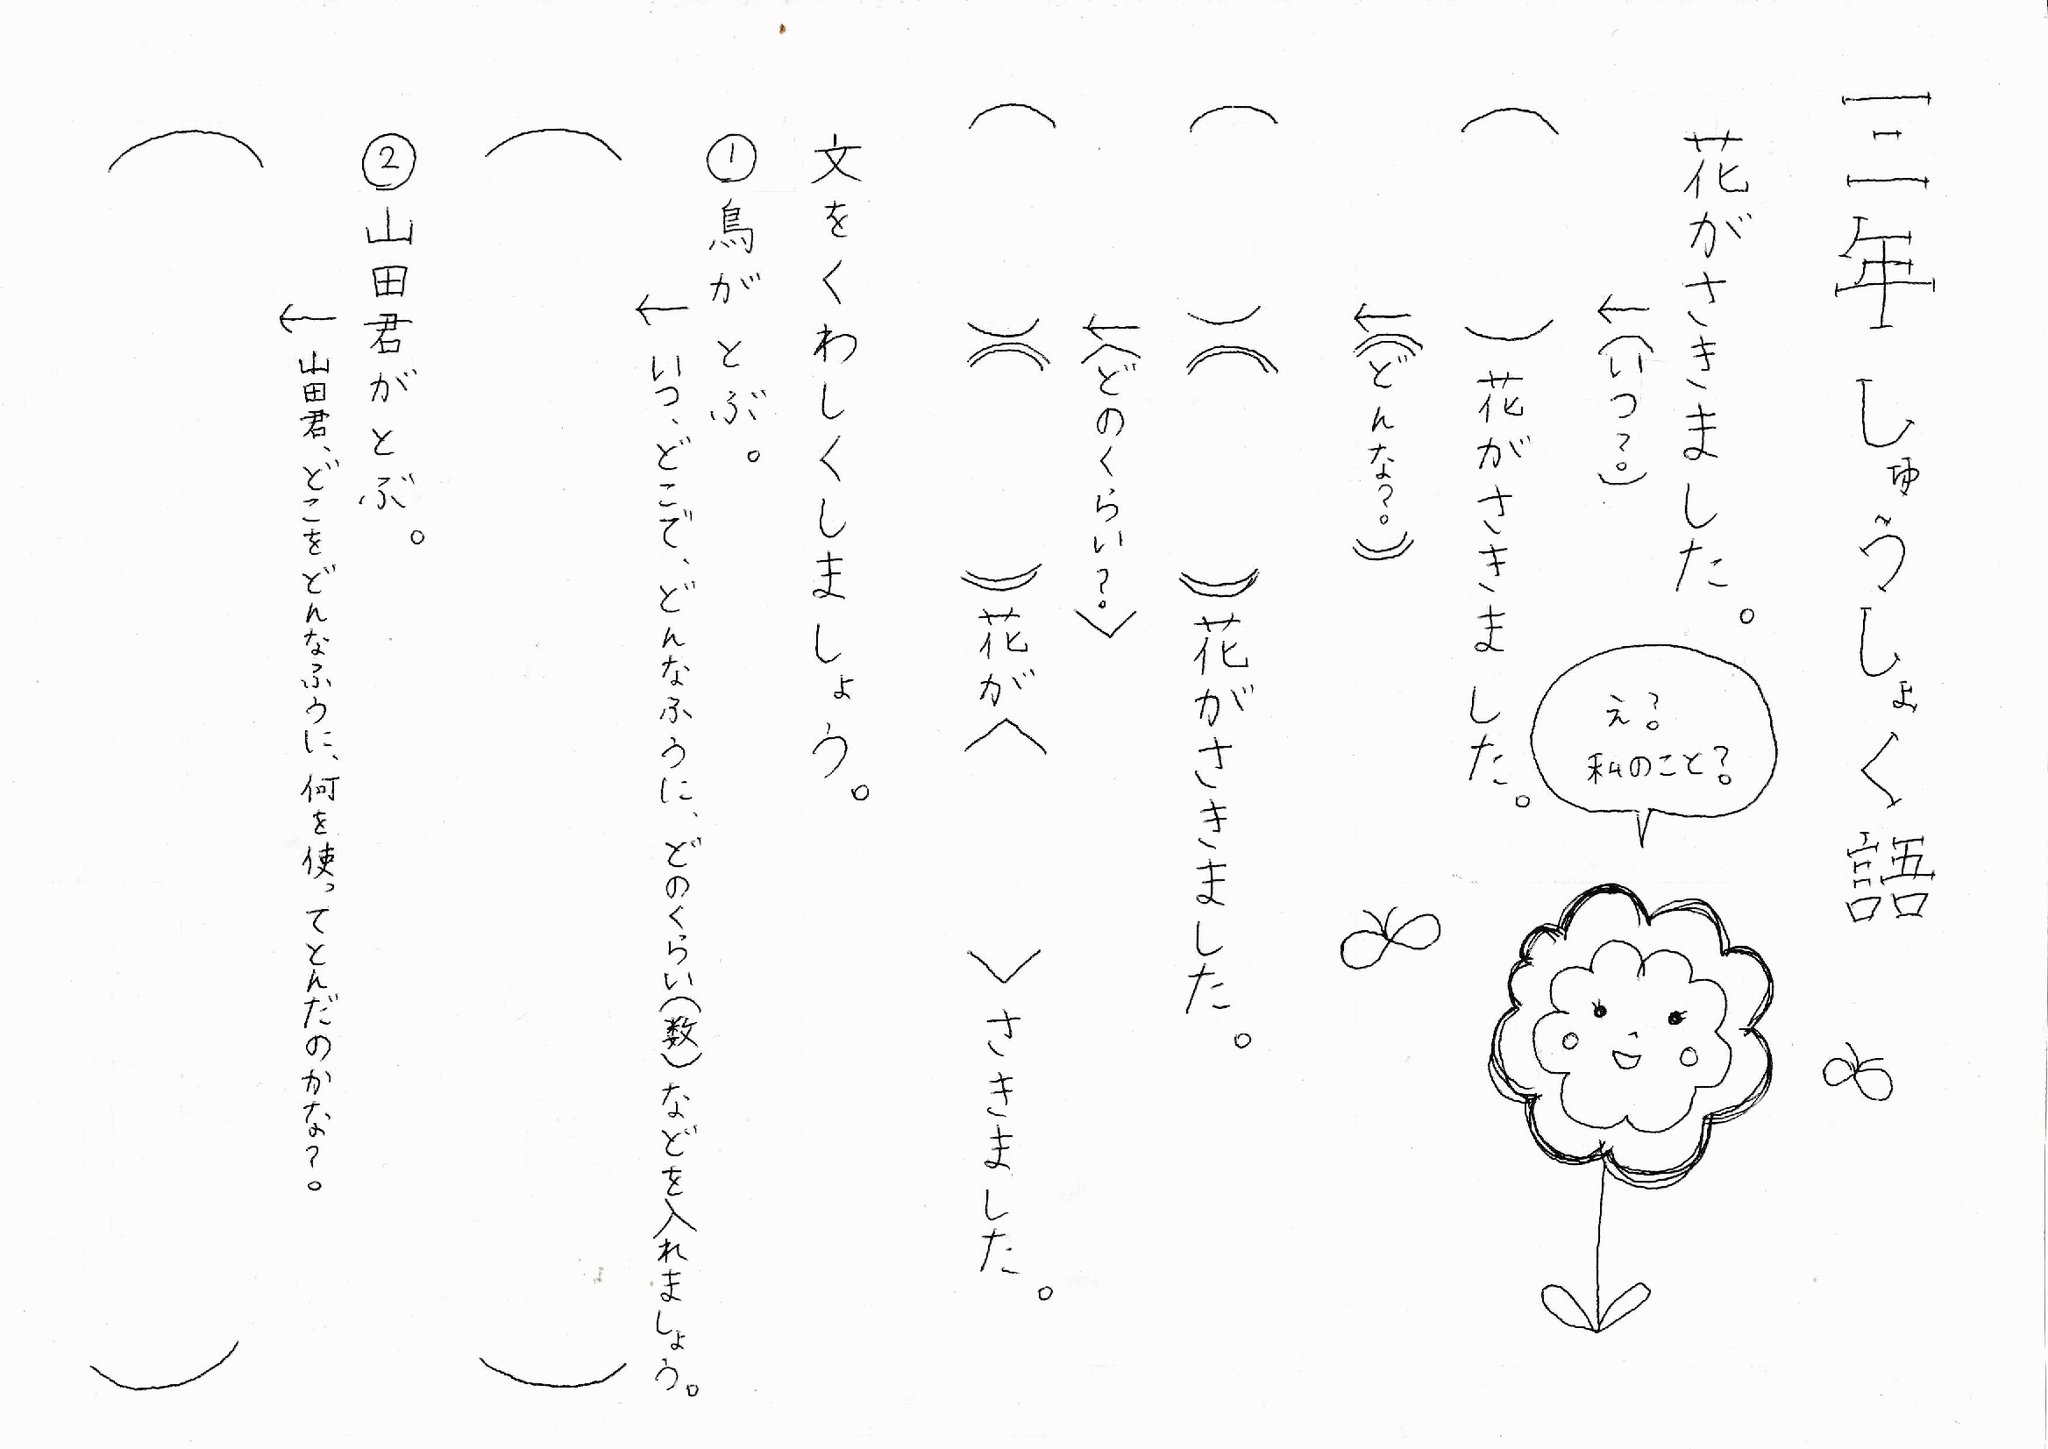 三年 しゅうしょく語
花がさきました。
←(いつ?。)
(　　　)花がさきました。
←((どんな?。))
(　　　)((　　　))花がさきました。
←〈どのくらい?。〉
(　　　)((　　　))花が〈　　　〉さきました。
え?
私のこと?
文をくわしくしましょう。
①鳥がとぶ。
←いつ、どこで、どんなふうに、どのくらい(数)などを入れましょう。
(　　　)
②山田君がとぶ。
←山田君、どこをどんなふうに、何を使ってとんだのかな?。
(　　　)